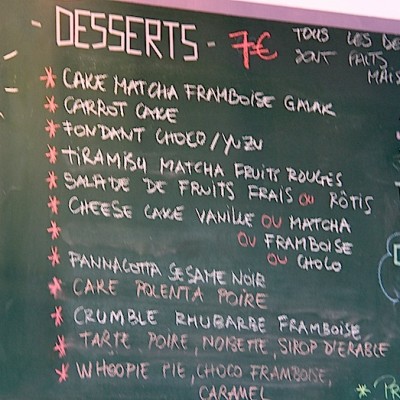 - DESSERTS - 7€
TOUS LES DE
SONT FAITS
MAIS
* CAKE MATCHA FRAMBOISE GMAR
* CARROT CAKE
* FONDANT CHOCO / YUZU
* TIRAMISU MATCHA FRUITS ROUGES
* SALADE DE FRUITS FRAIS OU RÔTIS
* CHEESE CAKE VANILLE OU MATCHA
* OU FRAMBOISE
OU CHOCO
* PANNACOTTA SESAME NOIR
* CAKE POLENTA POIRE
* CRUMBLE RHUBARBE FRAMBOISE
* TARTE POIRE, NOISETTE, SIROP D'ERABLE
* WHOOPIE PIE, CHOCO FRAMBOISE,
CARAMEL
* PR